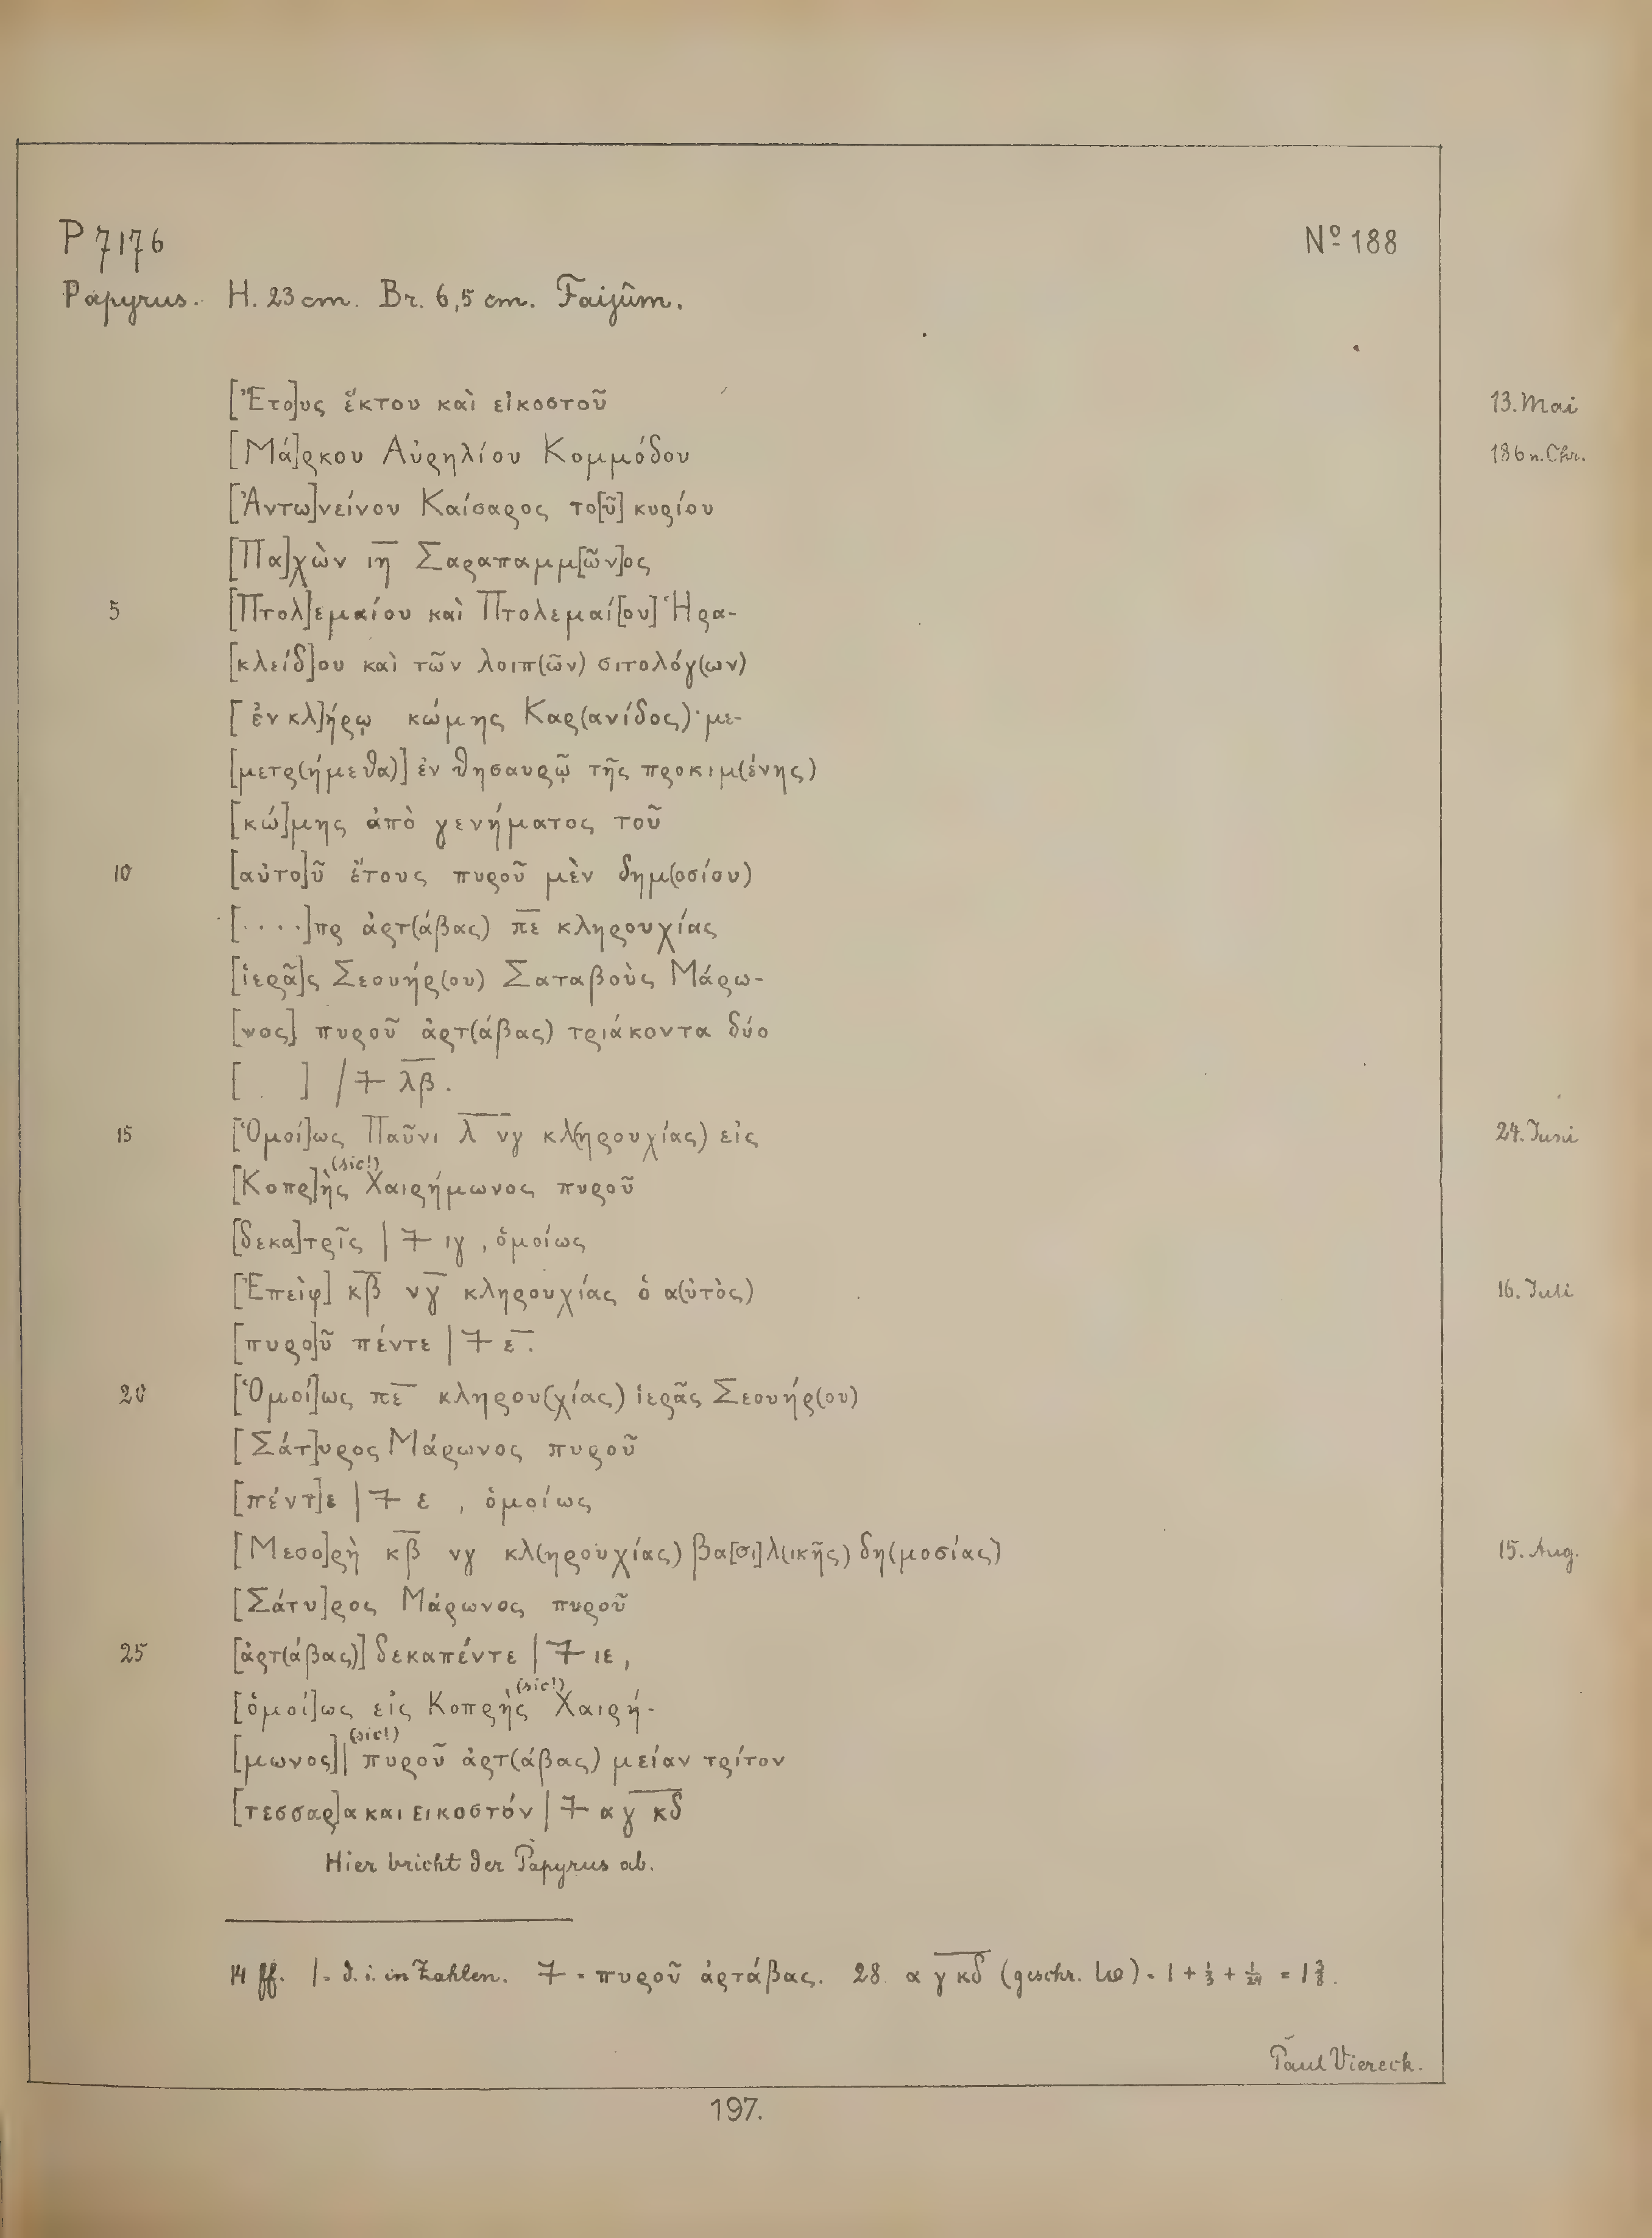 P 7176 Nº 188
Papyrus. H. 23 cm. Br. 6,5 cm. Faijûm.
[Ἔτο]υς ἕκτου καὶ εἰκοστοῦ 13. Mai
[Μά]ρκου Αὐρηλίου Κομμόδου 186 n. Chr.
[Ἀντω]νείνου Καίσαρος το[ῦ] κυρίου
[Πα]χὼν ι̅η̅ Σαραπαμμ[ῶν]ος
5 [Πτολ]εμαίου καὶ Πτολεμαί[ου] Ἡρα-
[κλείδ]ου καὶ τῶν λοιπ(ῶν) σιτολόγ(ων)
[ἐν κλ]ήρῳ κώμης Καρ(ανίδος)· με-
[μετρ(ήμεθα)] ἐν θησαυρῷ τῆς προκιμ(ένης)
[κώ]μης ἀπὸ γενήματος τοῦ
10 [αὐτο]ῦ ἔτους πυροῦ μὲν δημ(οσίου)
[····]πρ ἀρτ(άβας) π̅ε̅ κληρουχίας
[ἱερᾶ]ς Σεουήρ(ου) Σαταβοὺς Μάρω-
[νος] πυροῦ ἀρτ(άβας) τριάκοντα δύο
[ . ] / 7̶ λ̅β̅.
15 [Ὁμοί]ως Παῦνι λ̅ ν̅γ κλ(ηρουχίας) εἰς 24. Juni
[Κοπρ]ὴς (sic!) Χαιρήμωνος πυροῦ
[δεκα]τρῖς | 7̶ ιγ, ὁμοίως
[Ἐπεὶφ] κ̅β̅ νγ̅ κληρουχίας ὁ α(ὐτὸς) 16. Juli
[πυρο]ῦ πέντε | 7̶ ε̅.
20 [Ὁμοί]ως πε̅ κληρου(χίας) ἱερᾶς Σεουήρ(ου)
[Σάτ]υρος Μάρωνος πυροῦ
[πέντ]ε | 7̶ ε , ὁμοίως
[Μεσο]ρὴ κ̅β̅ νγ κλ(ηρουχίας) βα[σι]λ(ικῆς) δη(μοσίας) 15. Aug.
[Σάτυ]ρος Μάρωνος πυροῦ
25 [ἀρτ(άβας)] δεκαπέντε | 7̶ ιε,
[ὁμοί]ως εἰς Κοπρὴς (sic!) Χαιρή-
[μωνος]| (sic!) πυροῦ ἀρτ(άβας) μείαν τρίτον
[τεσσαρ]α και εικοστόν | 7̶ α γ̅ κ̅δ̅
Hier bricht der Papyrus ab.
14 ff. | = d. i. in Zahlen. 7̶ = πυροῦ ἀρτάβας. 28 α γ̅ κ̅δ̅ (geschr. ) = 1 + ⅓ + 1/24 = 1⅜.
Paul Viereck.
197.